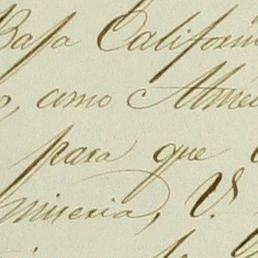 Baja Californi
o, como Alme
para que
miseria, V.